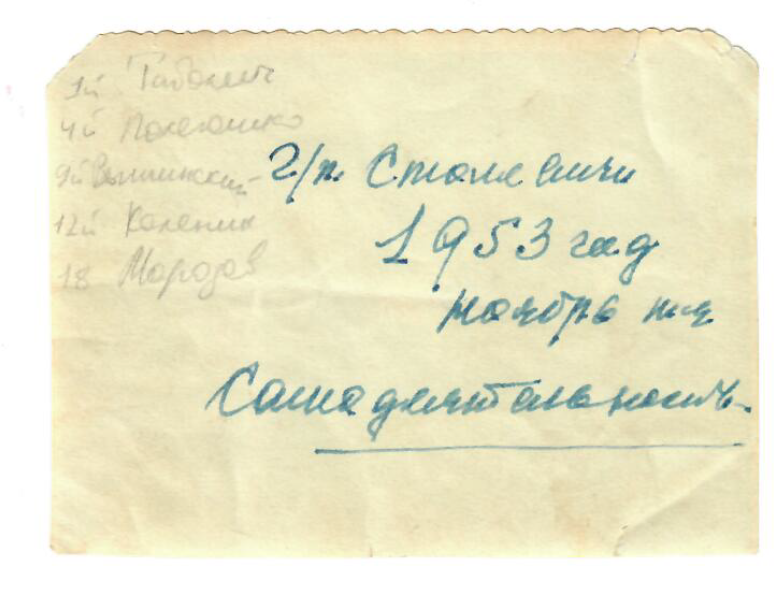 1й Таболич
4й Полеошко
9й Вышинский
12й Коленик
18 Морозов
г/п. Столбичи
1953 год
ноябрь м-ц
Самодеятельность.